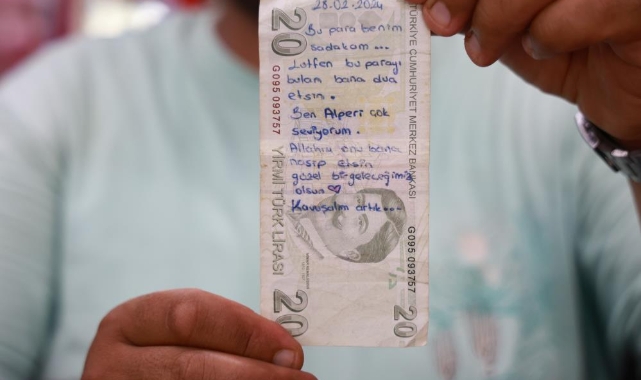 28.02.2024
Bu para benim
sadakam...
Lütfen bu parayı
bulan bana dua
etsin.
Ben Alperi çok
seviyorum.
Allahım onu bana
nasip etsin
güzel bir geleceğimiz
olsun
Kavuşalım artık...
20
G095 093757
YİRMİ TÜRK LİRASI
20
TÜRKİYE CUMHURİYET MERKEZ BANKASI
G095 093757
20